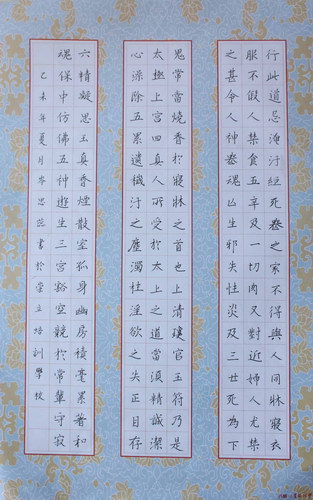 行此道忌淹汙經死喪之家不得與人同牀寢衣
服不假人禁食五辛及一切肉又對近婦人尤禁
之甚令人神喪魂亡生邪失性災及三世死為下
鬼常當燒香於寢牀之首也上清瓊宮玉符乃是
太極上宮四真人所受於太上之道當須精誠潔
心澡除五累遺穢汙之塵濁杜淫欲之失正目存
六精凝思玉真香煙散室孤身幽房積毫累著和
魂保中仿佛五神遊生三宮豁空競於常輩守寂
未年夏月思書於立培訓學校